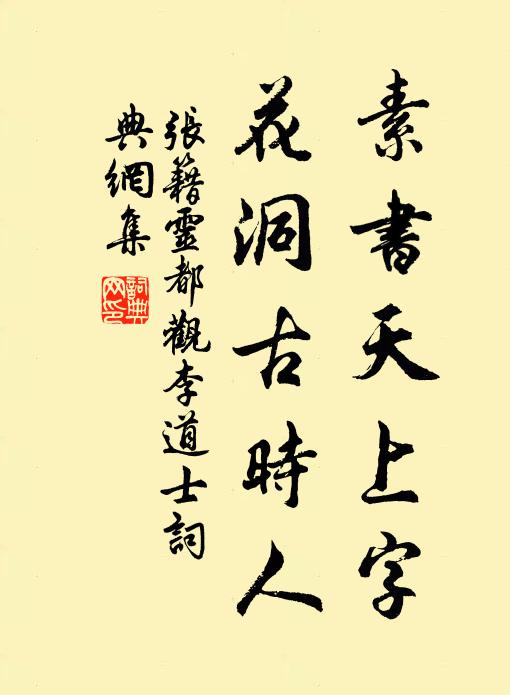 素書天上字
花洞古時人
張籍靈都觀李道士詞
典網集
詞典網印